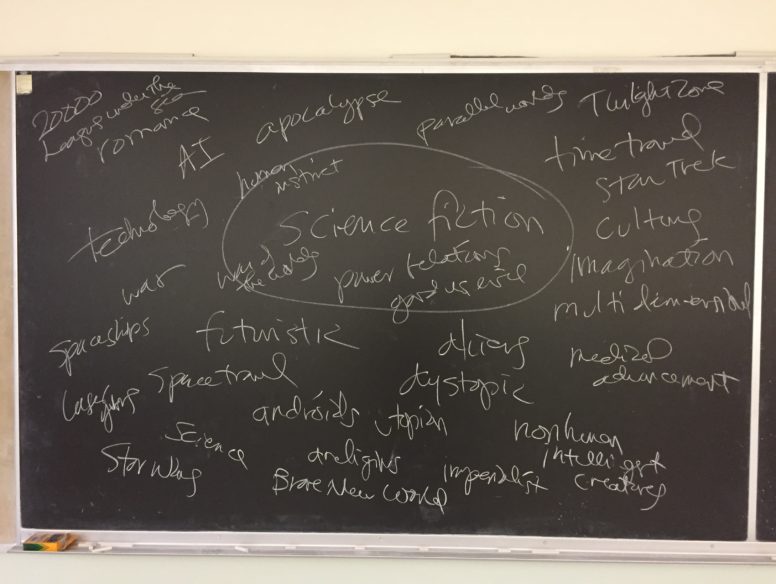 20000
League under the
Sea
romance
AI
apocalypse
parallel worlds
Twilight Zone
time travel
Star Trek
human
instinct
Science fiction
technology
culture
war
war of
the worlds
power relations
good vs evil
imagination
multidimensional
spaceships
futuristic
aliens
medical
advancement
Laser
guns
space travel
dystopic
androids
utopian
nonhuman
intelligent
creatures
Science
Star Wars
areligious
imperialist
Brave New World